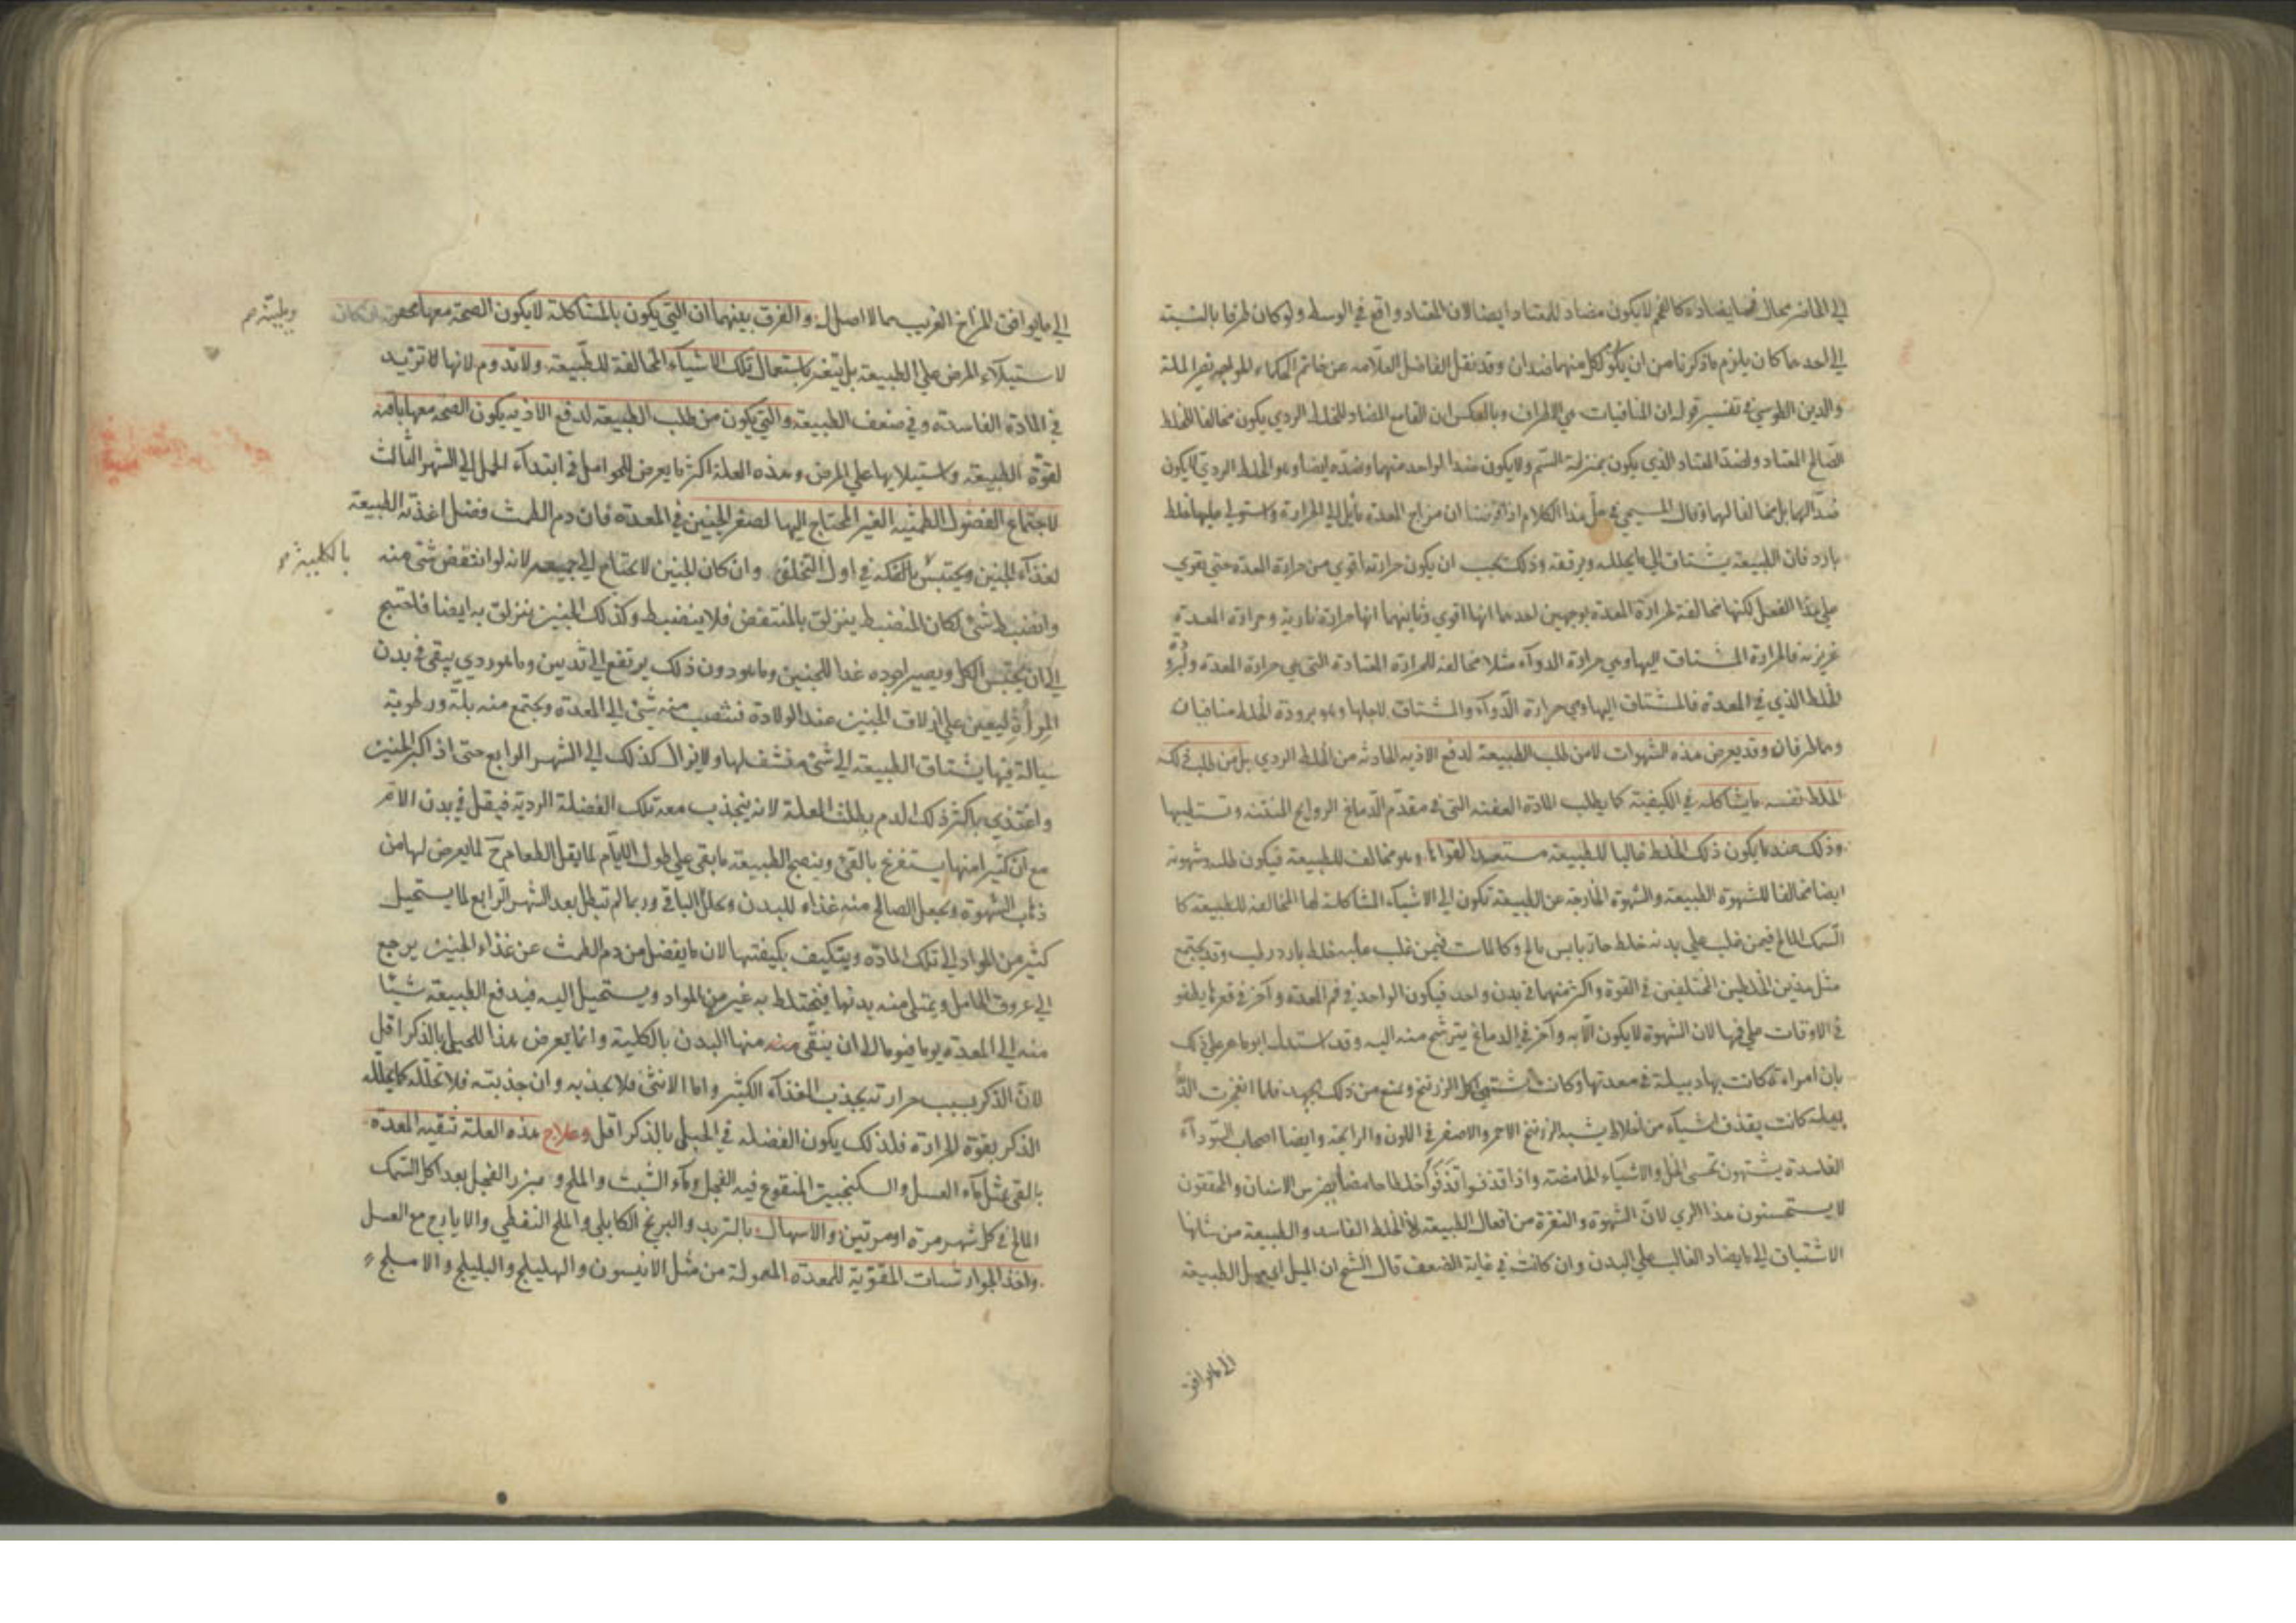 الى الحاضر بحال فما يضاده كالفحم لا يكون مضاد للمعتاد ايضا لان المعتاد واقع في الوسط ولو كان طرفا بالنسبة
الى احدهما كان يلزم ما ذكرنا من ان يكون لكل منهما ضدان وقد نقل الفاضل العلامة عن خاتم الحكماء الخواجه نصير الملة
والدين الطوسي في تفسير قوله ان المنافيات هي الاطراف وبالعكس ان القامع المضاد للخلط الردي يكون مخالفا للخلط
الصالح المعتاد ولضد المعتاد الذي يكون بمنزلة السم ولا يكون ضدا لواحد منهما وضده ايضا وهو الخلط الردي لا يكون
ضدا لها بل مخالفا لها وقال المسيحي في حل هذا الكلام اذا فرضنا ان مزاج المعدة مائل الى الحرارة واستولى عليها خلط
بارد فان الطبيعة يشتاق الى ما يحلله ويرققه وذلك يجب ان يكون حرارته اقوى من حرارة المعدة حتى يقوي
على هذا الفعل لكنها مخالفة لحرارة المعدة بوجهين احدهما انها اقوى وثانيهما انها حرارة نارية وحرارة المعدة
غريزية فالحرارة المشتاق اليها وهي حرارة الدواء مثلا مخالفة للحرارة المعتادة التي هي حرارة المعدة
الخلط الذي في المعدة فالمشتاق اليها وهي حرارة الدواء والمشتاق لاجلها وهو برودة الخلط متنافيان
وهما طرفان وقد يعرض هذه الشهوات لا من طلب الطبيعة لدفع الاذية الحادثة من الخلط الردي بل من طلب ذلك
الخلط نفسه ما يشاكله في الكيفية كما يطلب المادة العفنة التي في مقدم الدماغ الروايح المنتنة وتستطيبها
وذلك عندما يكون ذلك الخلط غالبا للطبيعة مستعبدا لقواها وهو مخالف للطبيعة فيكون طلبه وشهوته
ايضا مخالفا للشهوة الطبيعية والشهوة الخارجة عن الطبيعة تكون الى الاشياء المشاكلة لها المخالفة للطبيعة كما
السمك المالح فيمن غلب على بدنه خلط حار يابس مالح وكالمات فيمن غلب عليه خلط بارد رطب وقد يجتمع
مثل هذين الخلطين المختلفين في القوة واكثر منهما في بدن واحد فيكون الواحد في فم المعدة وآخر في قعرها يطفو
في الاوقات على فمها لان الشهوة لا يكون الا به وآخر في الدماغ يترشح منه اليه وقد استدل ابو ماهر على ذلك
بان امراة كانت بها دبيلة في معدتها وكانت تشتهي اكل الزرنيخ ويمنع من ذلك بجهد فلما انفجرت الد
بيلة كانت يقذف اشياء من اخلاط يشبه الزرنيخ الاحمر والاصفر في اللون والرايحة وايضا اصحاب السوداء
الفاسدة يشتهون تحسي الخل والاشياء الحامضة واذا قذفوا قذفوا خلطا حامضا يضرس الاسنان والمحققون
لا يستحسنون هذا الري لان الشهوة والنفرة من افعال الطبيعة لا الخلط الفاسد والطبيعة من شانها
الاشتياق الى ما يضاد الغالب على البدن وان كانت في غاية الضعف قال الشيخ ان الميل اي ميل الطبيعة
الى ما يوافق
الى ما يوافق المزاج الغريب مما لا اصل له والفرق بينهما ان التي يكون بالمشاكلة لا يكون الصحة معها
وطبيته صح
لاستيلاء المرض على الطبيعة بل يتغير باستعمال تلك الاشياء المخالفة للطبيعة ولا تدوم لانها لا تزيد
في المادة الفاسدة وفي ضعف الطبيعة والتي يكون من طلب الطبيعة لدفع الاذية يكون الصحة معها باقية
لقوة الطبيعة واستيلايها على المرض وهذه العلة اكثر ما يعرض للحوامل في ابتداء الحمل الى الشهر الثالث
لاجتماع الفضول الطمثية الغير المحتاج اليها لصغر الجنين في المعدة فان دم الطمث فضل اعدته الطبيعة
لغذاء الجنين ويحتبس بالكلية في اول التخلق وان كان الجنين لا يحتاج الى جميعه لانه لو انتقض شئ منه
بالكلية صح
وانضبط شئ لكان المنضبط ينزلق بالمنتقض فلا ينضبط وكذلك الجنين ينزلق به ايضا فاحتيج
الى ان يحتبس الكل ويصير اجوده غذا للجنين وما هو دون ذلك يرتفع الى ثديين وما هو ردي يبقى في بدن
المرأة ليعين على ازلاق الجنين عند الولادة فتنصب منه شئ الى المعدة ويجتمع منه بلة ورطوبة
سيالة فيها يشتاق الطبيعة الى شئ منشف لها ولا يزال كذلك الى الشهر الرابع حتى اذا كبر الجنين
واغتذى باكثر ذلك الدم بطلت العلة لانه ينجذب معه تلك الفضلة الردية فيقل في بدن الام
مع ان كثيرا منها يستفرغ بالقئ وينضج الطبيعة ما بقى على طول الايام لما يقل الطعام ح لما يعرض لها من
ذهاب الشهوة ويجعل الصالح منه غذاء للبدن ويحلل الباقي وربما لم تبطل بعد الشهر الرابع لما يستحيل
كثير من المواد الى تلك المادة ويتكيف بكيفيتها لان ما يفضل من دم الطمث عن غذاء الجنين يرجع
الى عروق الحامل ويمتلئ منه بدنها فيختلط به غيره من المواد ويستحيل اليه فيدفع الطبيعة شيئا
منه الى المعدة يوما فيوما الى ان ينقى منه منها البدن بالكلية وانما يعرض هذا للحبلى بالذكر اقل
لان الذكر بسبب حرارته يجذب الغذاء الكثير واما الانثى فلا يجذبه وان جذبته فلا تحلله كما يحلله
الذكر بقوة الحرارة فلذلك يكون الفضلة في الحبلى بالذكر اقل وعلاج هذه العلة تنقية المعدة
بالقئ بمثل ماء العسل والسكنجبين المنقوع فيه الفجل وماء الشبث والملح و بزر الفجل بعد اكل السمك
المالح في كل شهر مرة او مرتين والاسهال بالتربد والبرنج الكابلي والملح النفطي والايارج مع العسل
واخذ الجوارشنات المقوية للمعدة المعمولة من مثل الانيسون والهليلج والبليلج والاملج